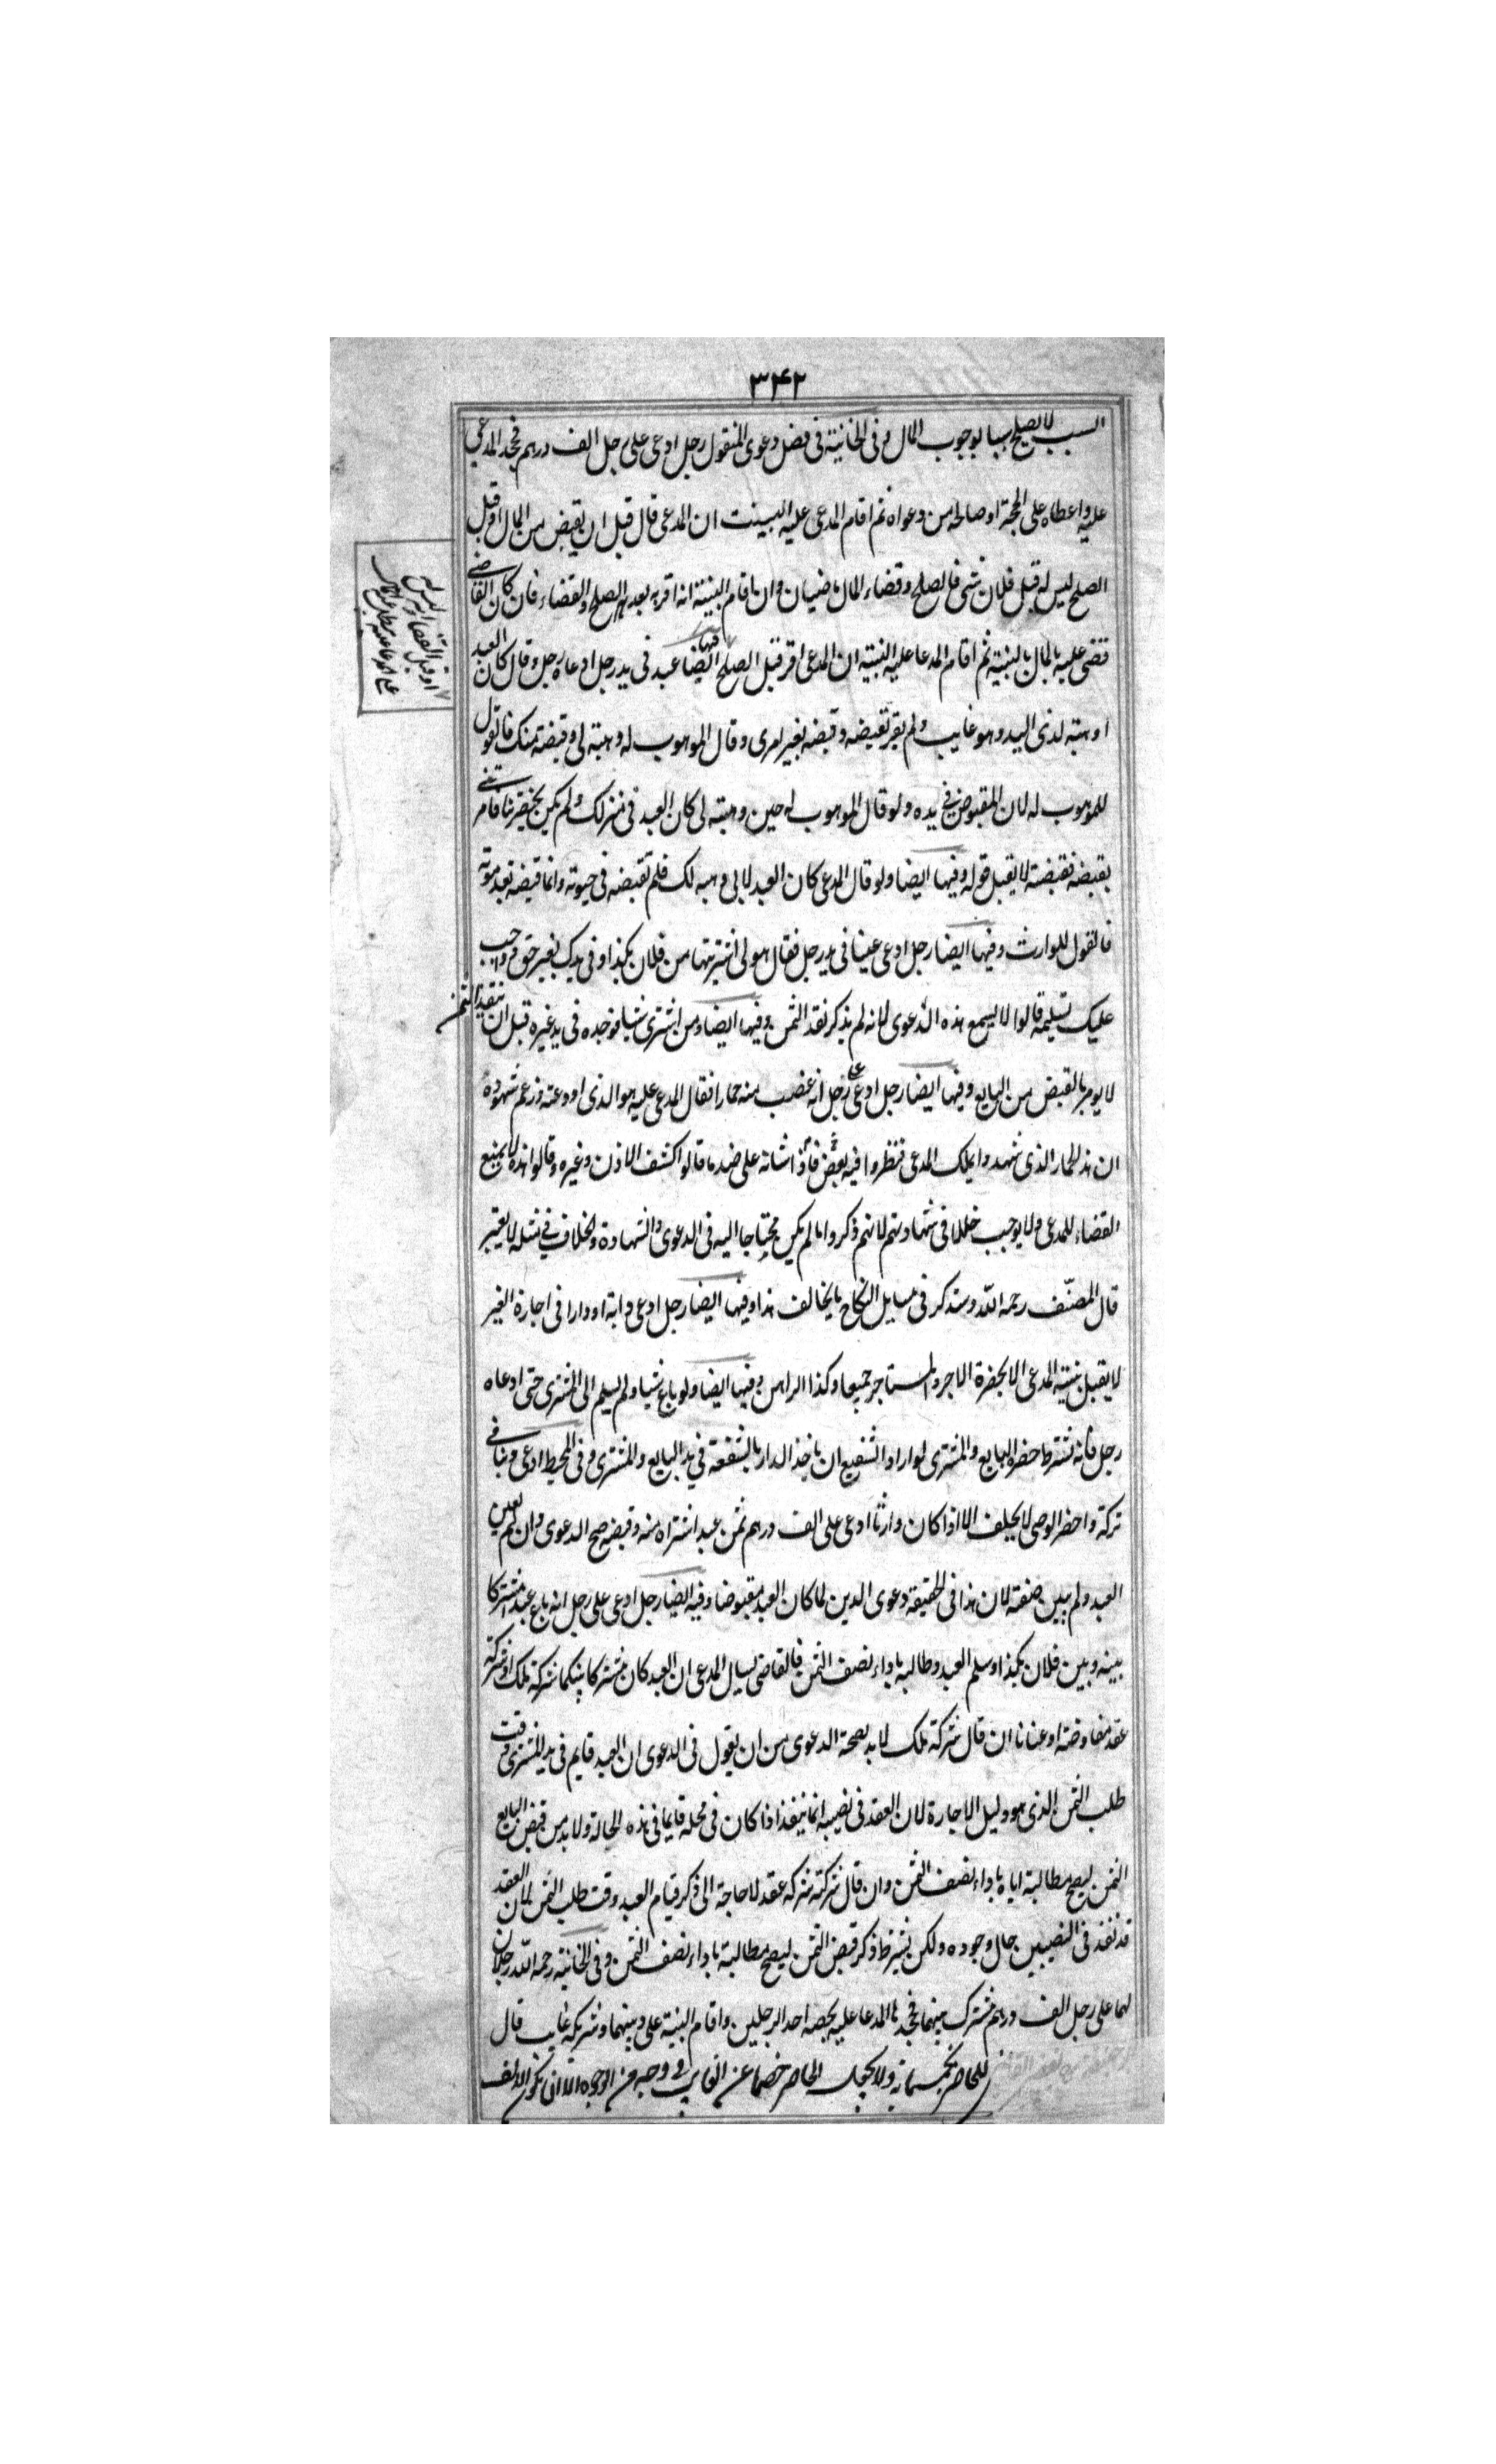 ۳۴۲
السبب لا يصلح سببا لوجوب المال وفى الخانية فى فصل دعوى المنقول رجل ادعى على رجل الف درهم فجحد المدعى
عليه واعطاه على الحجة او صالحه من دعواه ثم اقام المدعى عليه البينت ان المدعى قال قبل ان يقبض من المال او قبل
الصلح ليس له قبل فلان شى فالصلح وقضاء المال ماضيان وان اقام البينة انه اقر به بعد الصلح والقضاء فان كان القاضى
قضى عليه بالمال بالبينة ثم اقام المدعا عليه البينة ان المدعى اقر قبل الصلح فيها ايضا عبد فى يد رجل ادعاه رجل وقال كان العبد
او قبل القضا انه ليس له
على المدعا عليه شى
او هبته لذى اليد وهو غايب ولم يقر بقبضه وقبضه بغير امرى وقال الموهوب له وهبته لى وقبضته منك فالقول
للموهوب له لان المقبوض فى يده ولو قال الموهوب له حين وهبته لى كان العبد فى منزلك ولم يكن بحضرتنا فامرتنى
بقبضه فقبضته لا يقبل قوله وفيها ايضا ولو قال المدعى كان العبد لابى وهبه لك فلم تقبضه فى حيوته وانما قبضته بعد موته
فالقول للوارث وفيها ايضا رجل ادعى عينا فى يد رجل فقال هو لى اشتريتها من فلان بكذا وفى يدك بغير حق وواجب
عليك تسليمه قالوا لا يسمع هذه الدعوى لانه لم يذكر نقد الثمن وفيها ايضا ومن اشترى شيا فوجده فى يد غيره قبل ان ينقد الثمن
لا يومر بالقبض من البايع وفيها ايضا رجل ادعى على رجل انه غصب منه حمارا فقال المدعى عليه هو الذى اودعته وزعم شهوده
ان هذا الحمار الذى شهدوا بملك المدعى فنظروا فيه بعض فاذا شانه على ضد ما قالوا كشف الاذن وغيره وقالوا هذه لا يمنع
القضاء للمدعى ولا يوجب خللا فى شهادتهم لانهم ذكروا ما لم يكن محتاجا اليه فى الدعوى والشهادة والخلاف فى مثله لا يعتبر
قال المصنّف رحمه الله وسنذكر فى مسايل النكاح ما يخالف هذا وفيها ايضا رجل ادعى دابة او دارا فى اجارة الغير
لا يقبل بينته المدعى الا بحضرة الاجر والمستاجر جميعا وكذا الراهن وفيها ايضا ولو باع شيا ولم يسلم الى المشترى حتى ادعاه
رجل فانه يشترط حضرة البايع والمشترى لو اراد الشفيع ان ياخذ الدار بالشفعة فى يد البايع والمشترى وفى المحيط ادعى دينا فى
تركة واحضر الوصى لا يحلف الا اذا كان وارثا ادعى على الف درهم ثمن عبد اشتراه منه وقبضه صح الدعوى وان لم يعين
العبد ولم يبين صفته لان هذا فى الحقيقة دعوى الدين لما كان العبد مقبوضا وفيه ايضا رجل ادعى على رجل انه باع عبدا مشتركا
بينه وبين فلان بكذا وسلم العبد وطالبه باداء نصف الثمن فالقاضى يسال المدعى ان العبد كان مشتركا بينكما شركة ملك او شركة
عقد مفاوضة او عنانا ان قال شركة ملك لا بد لصحة الدعوى من ان يقول فى الدعوى ان العبد قايم فى يد المشترى وقت
طلب الثمن الذى هو دليل الاجازة لان العقد فى نصيبه انما ينفذ اذا كان فى محله قايما فى هذه الحالة ولا بد من قبض البايع
الثمن ليصح مطالبة اياه باداء نصف الثمن وان قال شركته شركة عقد لا حاجة الى ذكر قيام العبد وقت طلب الثمن لان العقد
قد نفذ فى النصيبين حال وجوده ولكن يشترط ذكر قبض الثمن ليصح مطالبة باداء نصف الثمن وفى الخانية رحمه الله رجلان
لهما على رجل الف درهم مشترك بينهما فجحدها المدعا عليه بحصه احد الرجلين واقام البينة على دينهما وشريكه غايب قال
للحاضر بخمسماية ولا يجعل الحاضر خصما عن الغايب فى وجه من الوجوه الا ان يكون الالف